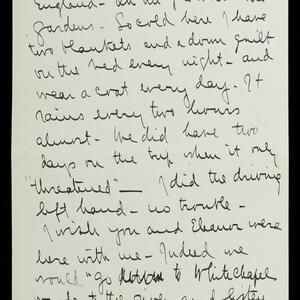 England – 
gardens – So cold here I have
two blankets and a down quilt
on the bed every night – and
wear a coat every day – It
rains every two hours
almost – We did have two
days on the trip when it only
"threatened" – I did the driving
left hand – no trouble –
I wish you and Eleanor were
here with me – Indeed we
would "go down to Whitechapel